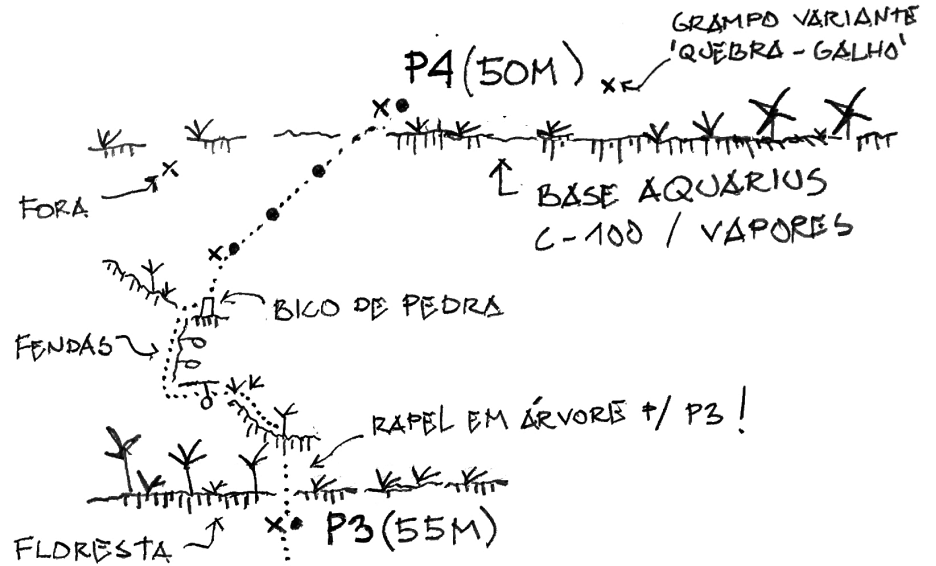 GRAMPO VARIANTE
'QUEBRA-GALHO'
P4 (50M)
FORA
BASE AQUARIUS
C-100 / VAPORES
BICO DE PEDRA
FENDAS
RAPEL EM ÁRVORE P/ P3!
P3 (55M)
FLORESTA